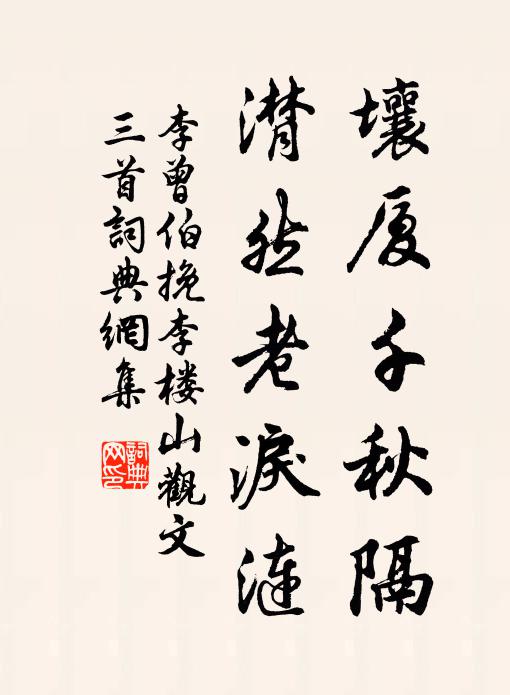 壤厚千秋隔
潸然老淚漣
李曾伯挽李楼山觀文
三首詞典網集
詞典
网印